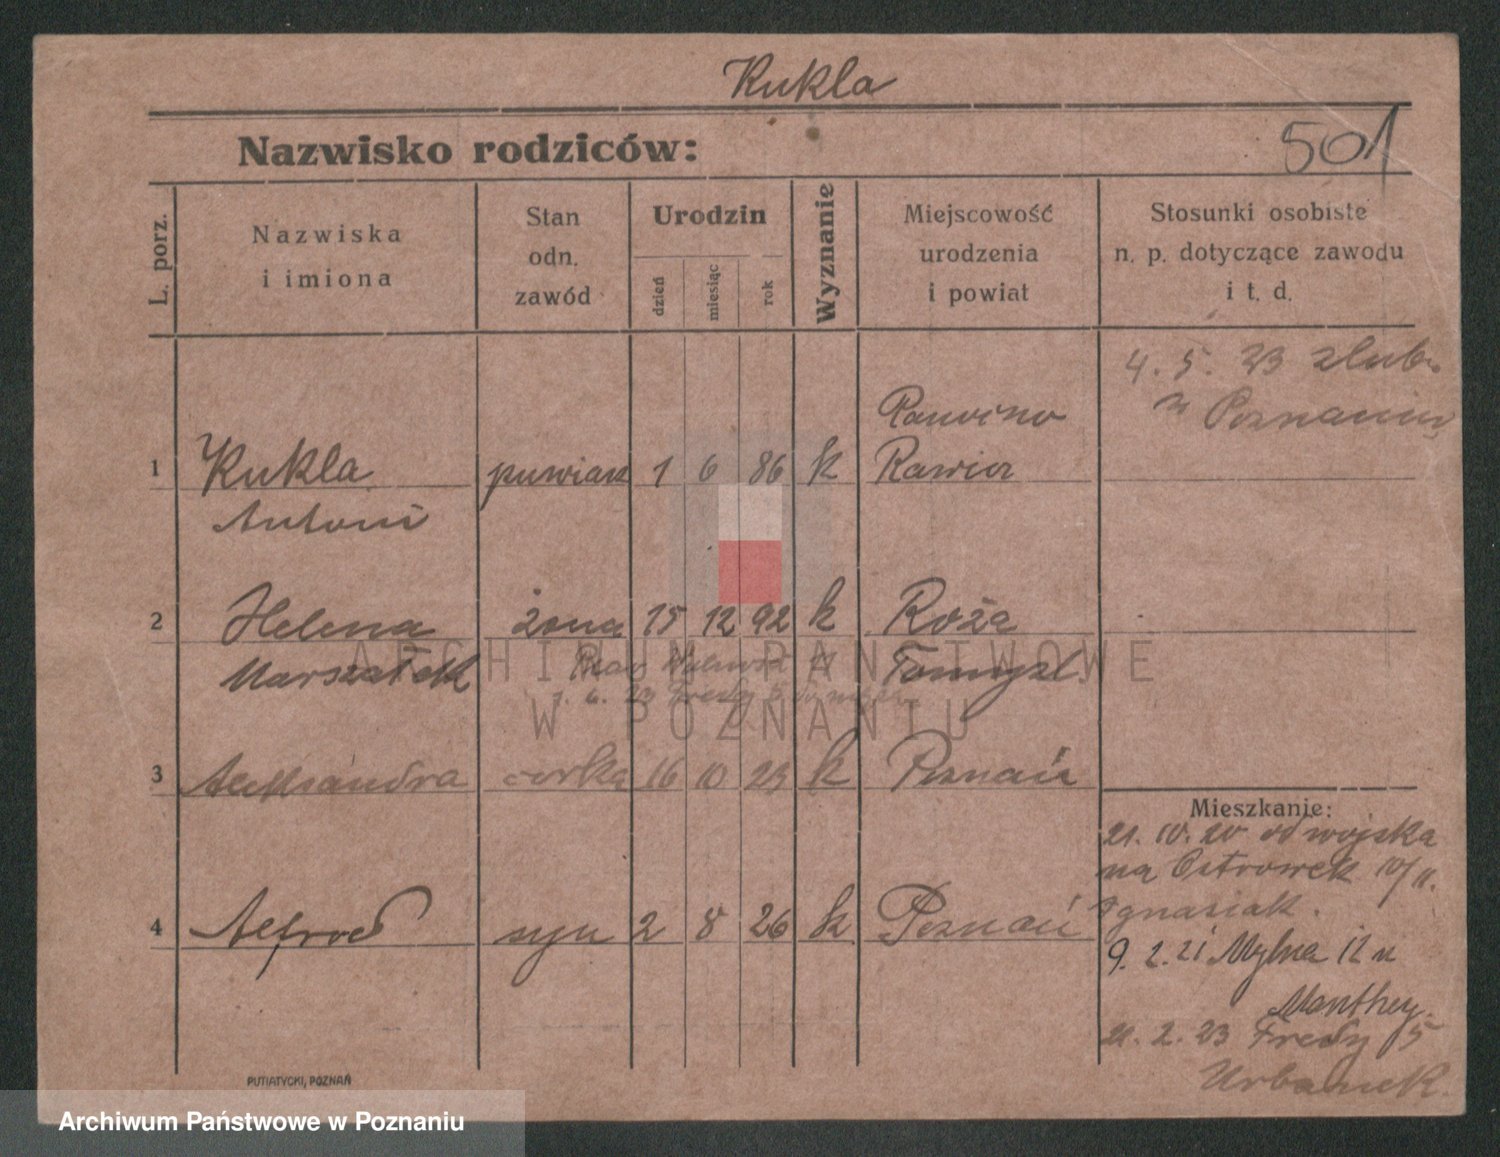 Kukla
Nazwisko rodziców:
501
L. porz.
Nazwiska
i imiona
Stan
odn.
zawód
Urodzin
dzień
miesiąc
rok
Wyznanie
Miejscowość
urodzenia
i powiat
Stosunki osobiste
n. p. dotyczące zawodu
i t. d.
4. 5. 23 zlub.
w Poznaniu
1 Kukla 1 6 86 k Rawicz
Antoni
2 Helena żona 15 12 92 k Roża
Marszałek Tomysl.
1. 6. 23 Fredy 5
3 Aleksandra corka 16 10 23 k Poznań
4 Alfred syn 2 8 26 k Poznań
Mieszkanie:
21. 10. 20 od wojska
na Ostrowek 10/11.
Ignasiak.
9. 2. 21 Mylna 12 u
Manthey.
21. 2. 23 Fredy 5
Urbanek.
PUTIATYCKI, POZNAŃ
ARCHIWUM PAŃSTWOWE
W POZNANIU
Archiwum Państwowe w Poznaniu